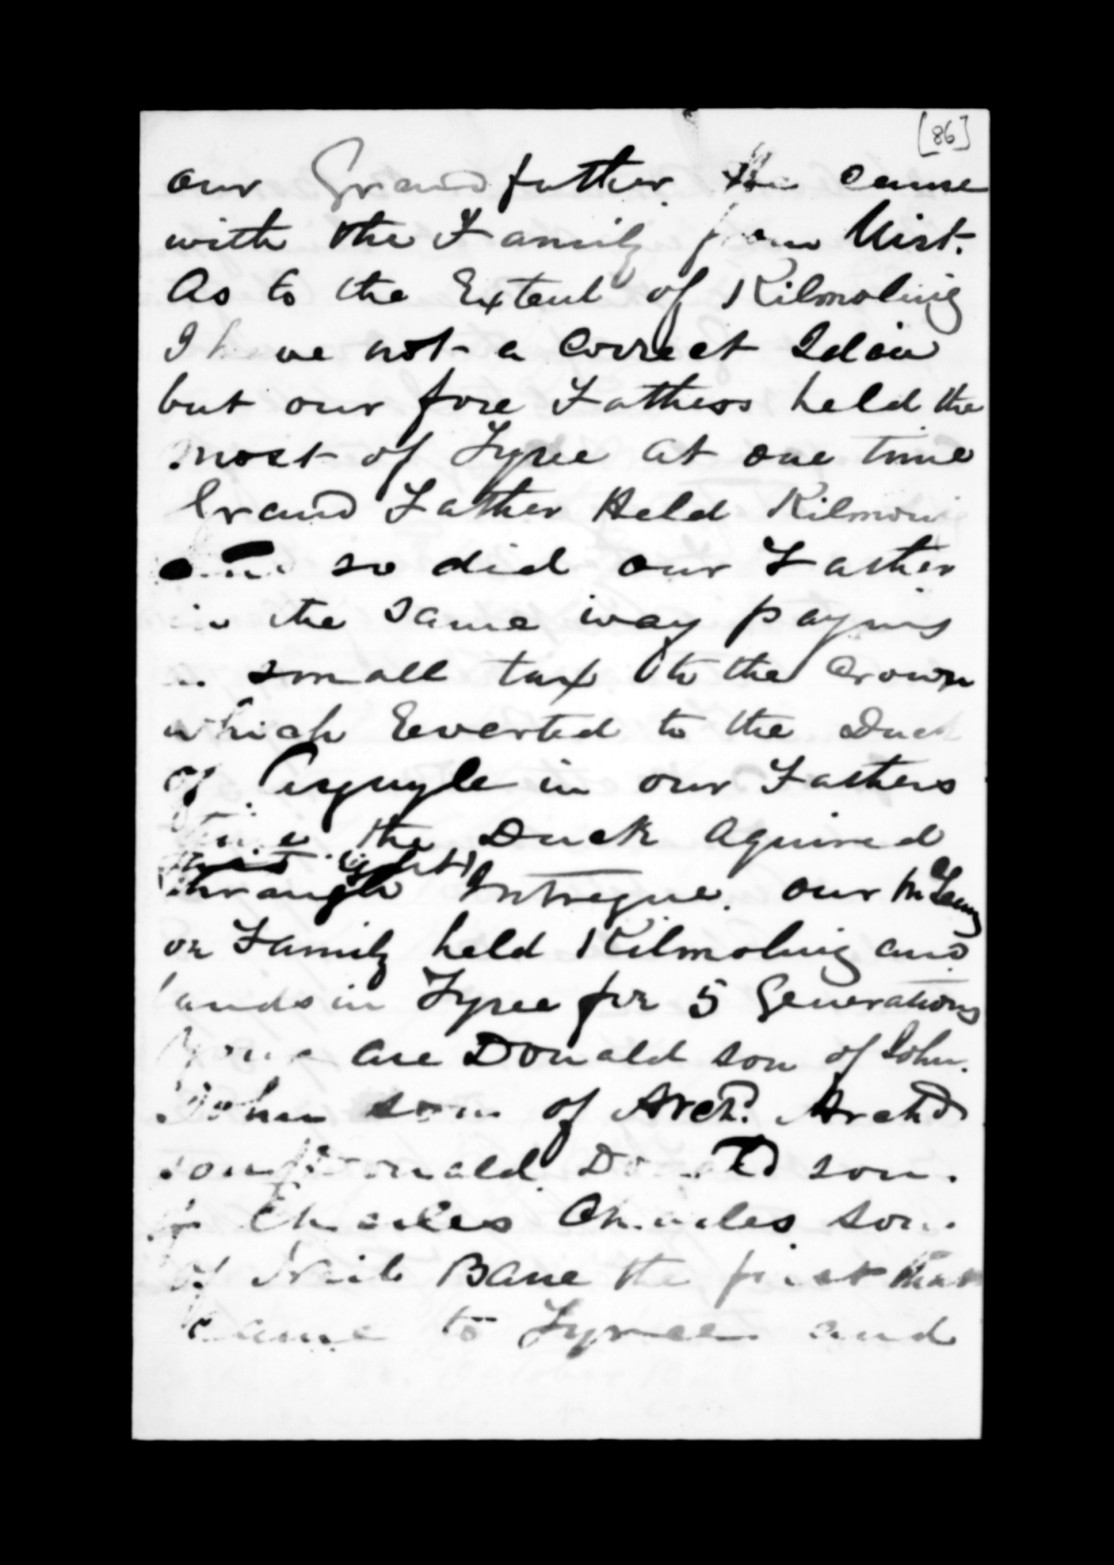 [86]
our Grandfather He came
with the Family from Uist.
As to the Extent of Kilmoluig
I have not a correct Idaie
but our fore Fathers held the
most of Tyree at one time
Grand Father Held Kilmow
and so did our Father
in the same way paying
a small tax to the Crown
which Reverted to the Duck
of Argugle in our Fathers
time the Duck Aquired
through Intregue. Our McLean
on Family held Kilmoluig and
lands in Tyree for 5 Generations
You are Donald son of John.
John son of Archd. Archd
son of Donald Donald son.
of Charles Charles son.
of Neil Bane the first that
came to Tyree and